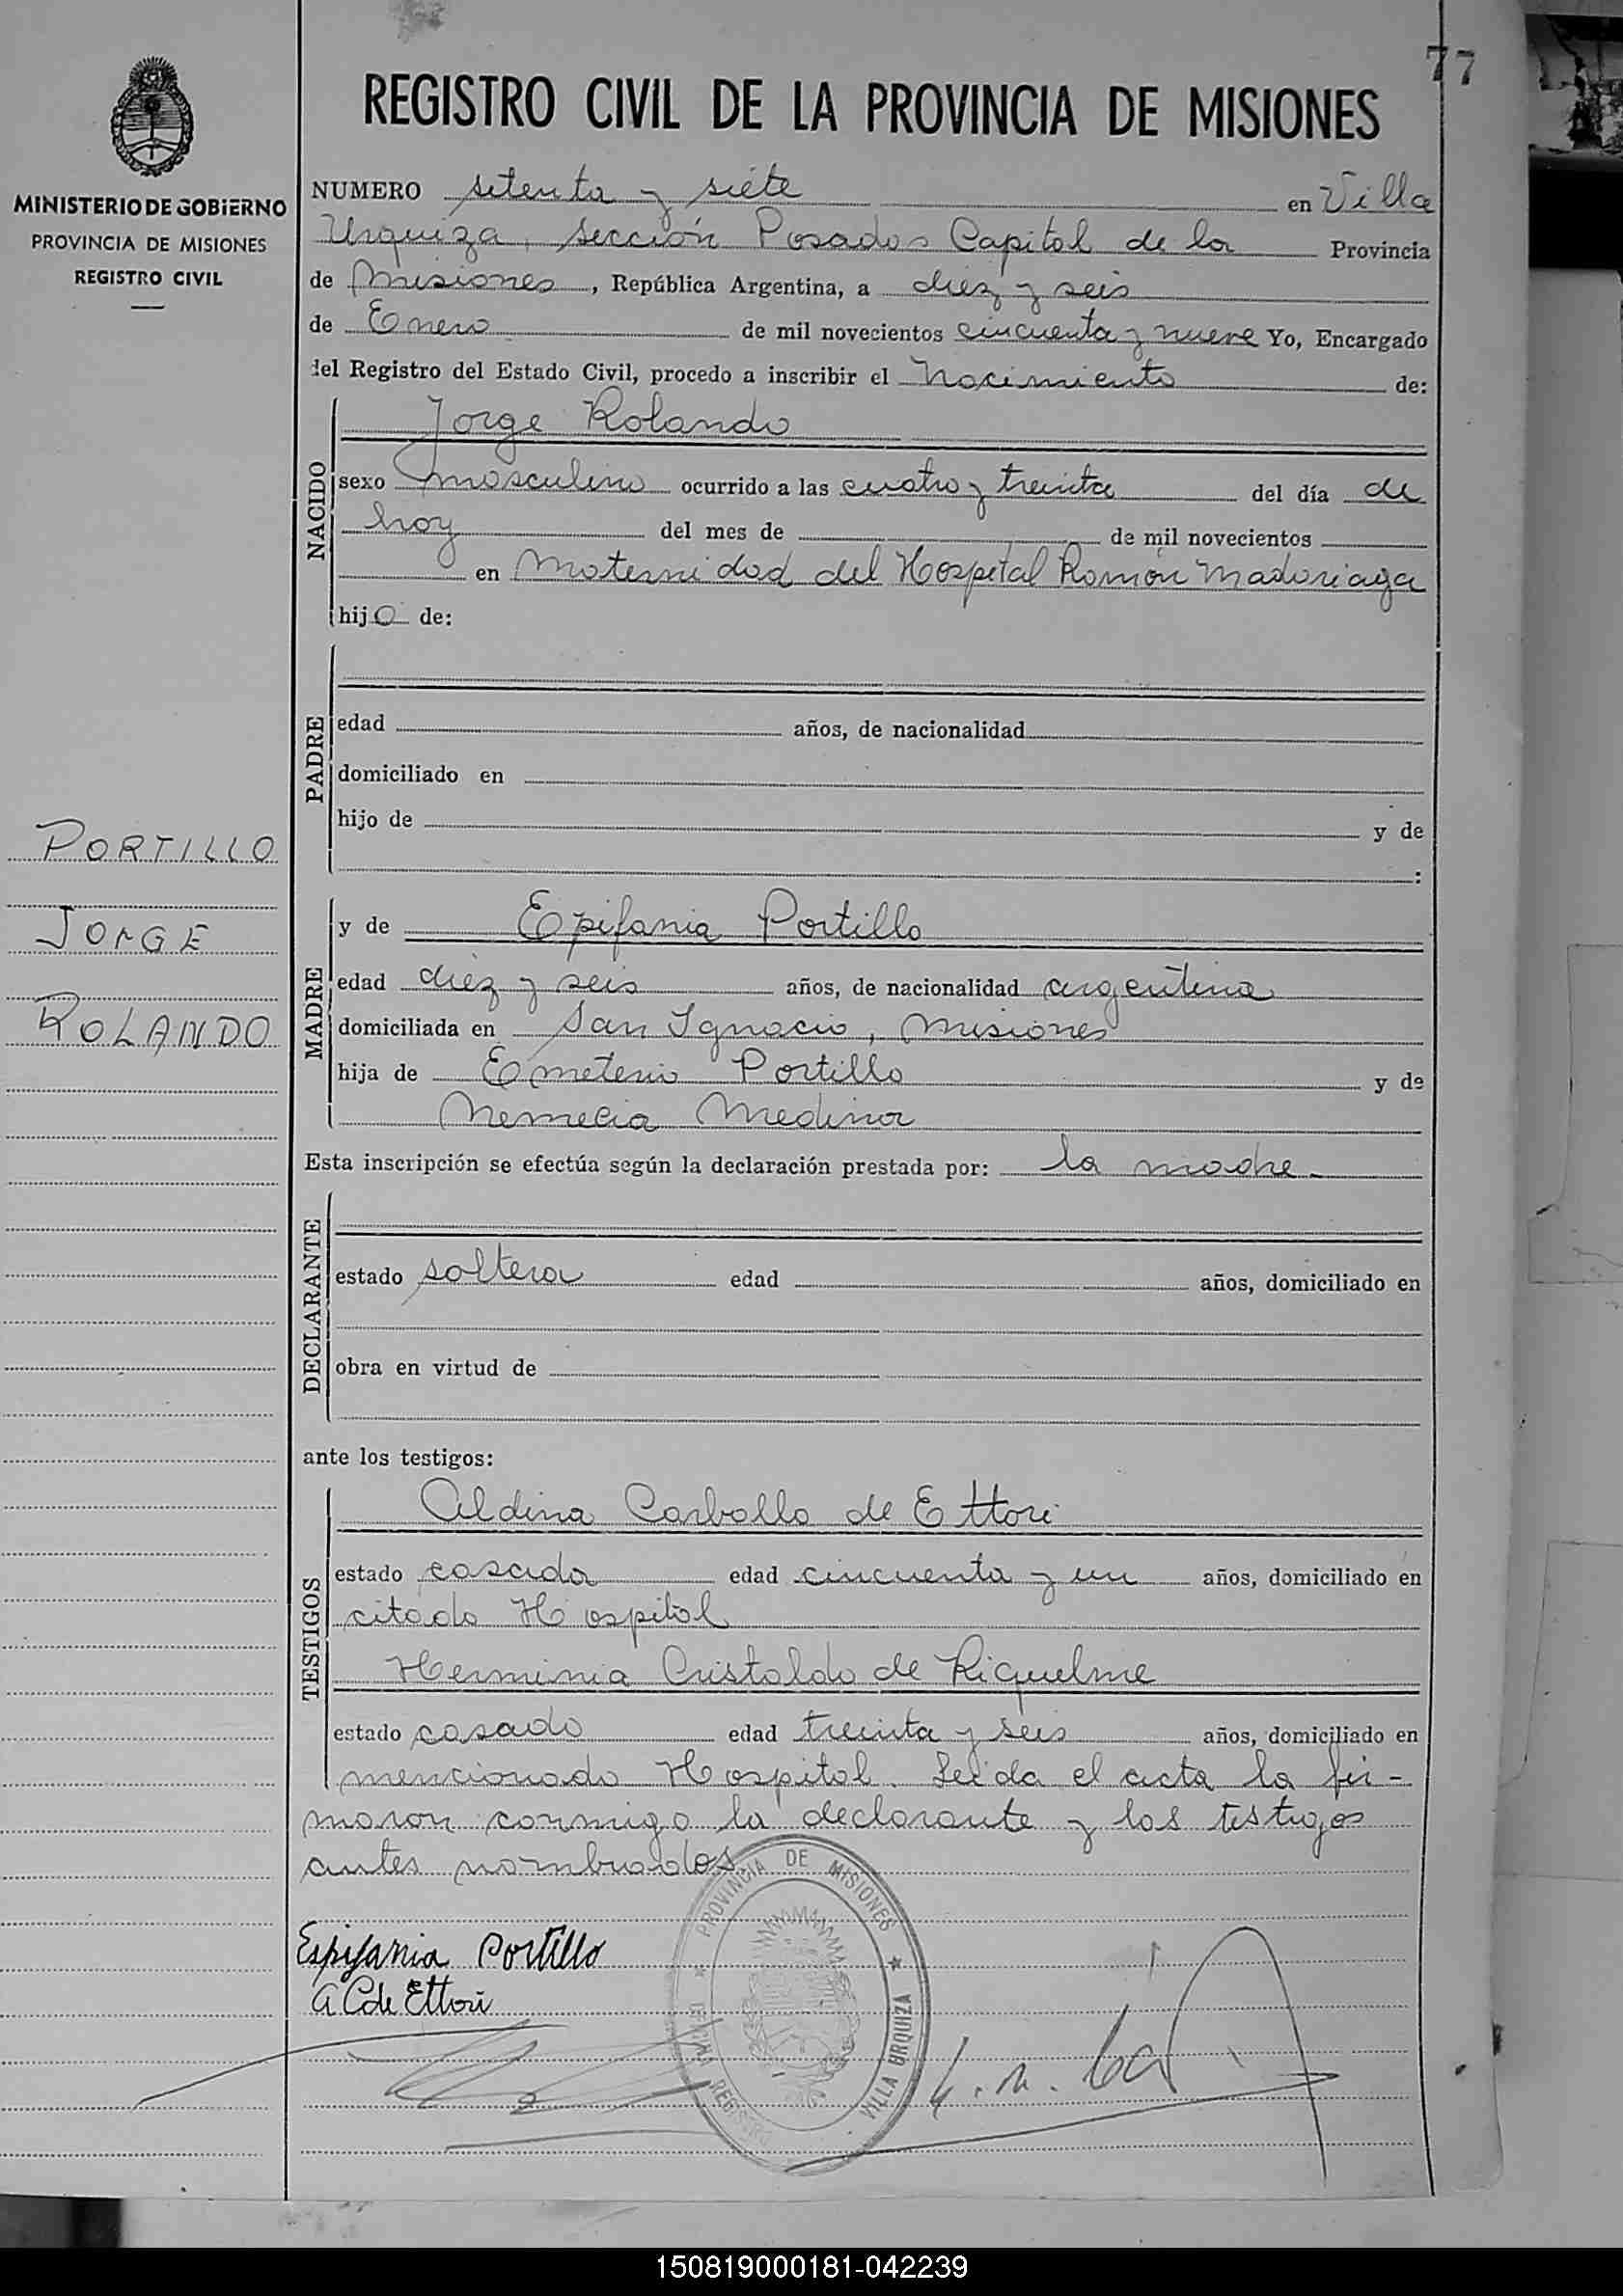 77
REGISTRO CIVIL DE LA PROVINCIA DE MISIONES
MINISTERIO DE GOBIERNO
PROVINCIA DE MISIONES
REGISTRO CIVIL
NUMERO setenta y siete en Villa
Urquiza, sección Posadas Capital de la Provincia
de Misiones, República Argentina, a diez y seis
de Enero de mil novecientos cincuenta y nueve Yo, Encargado
del Registro del Estado Civil, procedo a inscribir el Nacimiento de:
NACIDO
Jorge Rolando
sexo masculino ocurrido a las cuatro y treinta del día de
hoy del mes de de mil novecientos
en Maternidad del Hospital Ramón Madariaga
hijo de:
PADRE
edad años, de nacionalidad
domiciliado en
hijo de y de
:
PORTILLO
JORGE
ROLANDO
MADRE
y de Epifania Portillo
edad diez y seis años, de nacionalidad argentina
domiciliada en San Ignacio, Misiones
hija de Emeterio Portillo y de
Nemecia Medina
Esta inscripción se efectúa según la declaración prestada por: la madre
DECLARANTE
estado soltera edad años, domiciliado en
obra en virtud de
ante los testigos:
TESTIGOS
Aldina Carballo de Ettori
estado casada edad cincuenta y un años, domiciliado en
citado Hospital
Herminia Cristaldo de Riquelme
estado casado edad treinta y seis años, domiciliado en
mencionado Hospital. Leida el acta la fir-
maron conmigo la declarante y los testigos
antes nombrados.
PROVINCIA DE MISIONES
VILLA URQUIZA
REGISTRO
Espifania Portillo
A C de Ettori
150819000181-042239